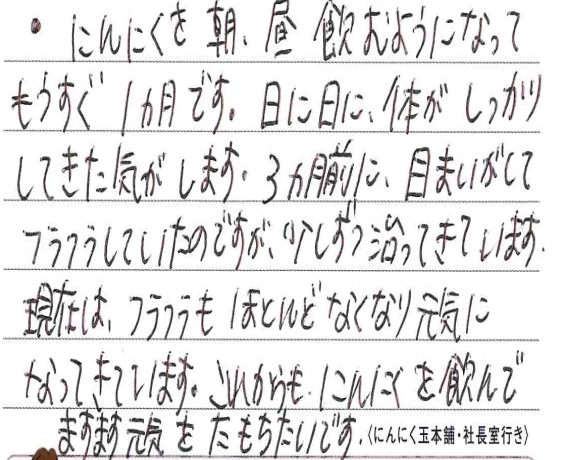 • にんにくを朝、昼飲むようになって
もうすぐ1カ月です。日に日に、体がしっかり
してきた気がします。3カ月前に、目まいがして
フラフラしていたのですが、少しずつ治ってきています。
現在は、フラフラもほとんどなくなり元気に
なってきています。これからも、にんにくを飲んで
ますます元気をたもちたいです。〈にんにく玉本舗・社長室行き〉